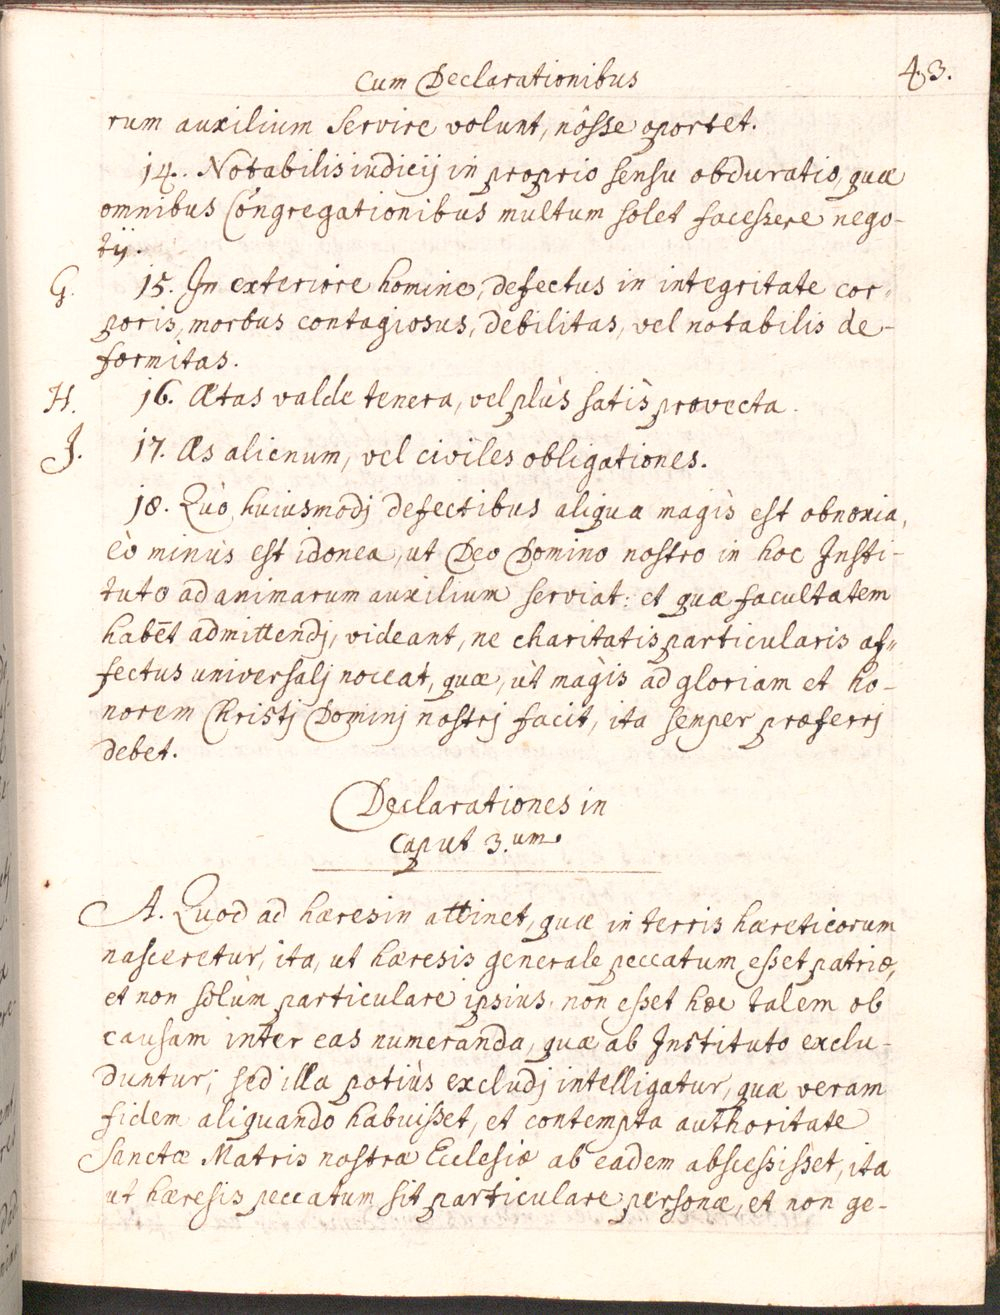 Cum Declarationibus 43.
rum auxilium servire volunt, nôsse oportet.
14. Notabilis iudicij in proprio sensu obduratio, quæ
omnibus Congregationibus multum solet facessere nego-
tÿ.
G. 15. In exteriore homine, defectus in integritate cor-
poris, morbus contagiosus, debilitas, vel notabilis de-
formitas.
H. 16. Ætas valde tenera, vel plùs satìs provecta.
J. 17. Æs alienum, vel civiles obligationes.
18. Quò huiusmodj defectibus aliqua magìs est obnoxia,
eò minùs est idonea, ut Deo Domino nostro in hoc Insti-
tuto ad animarum auxilium serviat: et quæ facultatem
habēt admittendj, videant, ne charitatis particularis af-
fectus universalj noceat, quæ, ùt magìs ad gloriam et ho-
norem Christj Dominj nostrj facit, ita semper præferrj
debet.
Declarationes in
Caput 3.um
A. Quod ad hæresin attinet, quæ in terris hæreticorum
nasceretur, ita, ut hæresis generale peccatum esset patriæ,
et non solùm particulare ipsius, non esset hæc talem ob
causam inter eas numeranda, quæ ab Instituto exclu-
duntur; sed illa potiùs excludj intelligatur, quæ veram
fidem aliquando habuisset, et contempta authoritate
Sanctæ Matris nostræ Ecclesiæ ab eadem abscessisset, ita
ut hæresis peccatum sit particulare personæ, et non ge-